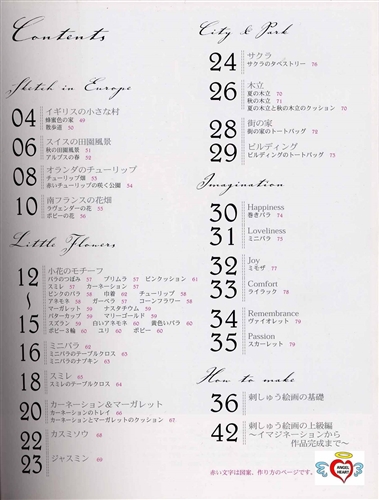 Contents
Sketch in Europe
04 イギリスの小さな村
蜂蜜色の家 49
散歩道 50
06 スイスの田園風景
秋の田園風景 51
アルプスの春 52
08 オランダのチューリップ
チューリップ畑 53
赤いチューリップの咲く公園 54
10 南フランスの花畑
ラヴェンダーの花 55
ポピーの花 56
Little Flowers
12 小花のモチーフ
バラのつぼみ 57 プリムラ 57 ピンクッション 61
スミレ 57 カーネーション 57
ピンクのバラ 58 巾着 62 チューリップ 58
アネモネ 58 ガーベラ 57 コーンフラワー 58
〜
15 マーガレット 59 ナスタチウム 59
バターカップ 59 マリーゴールド 59
スズラン 59 白いアネモネ 60 黄色いバラ 60
ポピー3輪 60 ユリ 60 ポピー 60
16 ミニバラ 62
ミニバラのテーブルクロス 63
ミニバラのナプキン 63
18 スミレ 65
スミレのテーブルクロス 64
20 カーネーション&マーガレット
カーネーションのトレイ 66
カーネーションとマーガレットのクッション 67
22 カスミソウ 68
23 ジャスミン 69
City & Park
24 サクラ
サクラのタペストリー 76
26 木立
夏の木立 70
秋の木立 71
夏の木立と秋の木立のクッション 70
28 街の家
街の家のトートバッグ 72
29 ビルディング
ビルディングのトートバッグ 73
Imagination
30 Happiness
巻きバラ 74
31 Loveliness
ミニバラ 75
32 Joy
ミモザ 77
33 Comfort
ライラック 78
34 Remembrance
ヴァイオレット 79
35 Passion
スカーレット 79
How to make
36 刺しゅう絵画の基礎
42 刺しゅう絵画の上級編
〜イマジネーションから
作品完成まで〜
赤い文字は図案、作り方のページです。
ANGEL
HEART